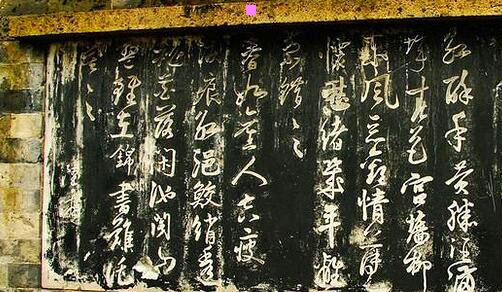 紅酥手黄縢酒滿
城春色宮墻柳
東風惡歡情薄一
懷愁緒幾年離
索錯々々
春如舊人空瘦
淚痕紅浥鮫綃透
桃花落閑池閣山
盟雖在錦書難托
莫々々